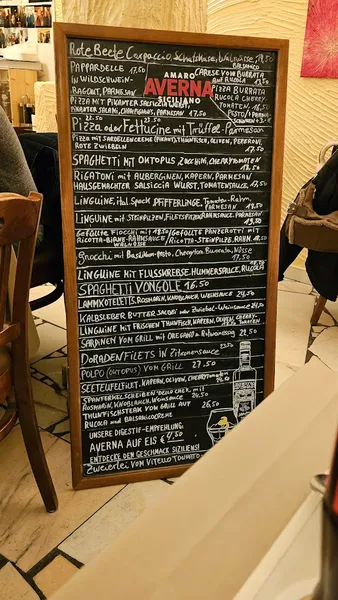 Rote Beete Carpaccio, Schafskäse, Walnüsse, 17,50
Balsamico
Pappardelle 17.50
in Wildschwein-
Ragout, Parmesan
AMARO
AVERNA
SICILIANO
Carese vom Burrata
auf Rucola
Pizza Burrata
Rucola Cherry
Tomaten, 16,50
Pesto/Parma-
Pizza mit pikanter Salsiccia Wurst,
pikanter Salami, Champignons, Parmesan 17,50
22.50
23.50
Pizza oder Fettucine mit Trüffel-Parmesan
Pizza mit Sardellencreme (pikant), Thunfisch, Oliven, Peperoni,
Rote Zwiebeln 17,50
Spaghetti mit Oktopus Zucchini, Cherrytomaten
18,50
Rigatoni mit Auberginen, Kapern, Parmesan
Hausgemachter Salsiccia Wurst, Tomatensauce, 17,50
Linguine, ital. Speck Pfifferlinge, Tomaten-Rahm,
Parmesan
Linguine mit Steinpilzen, Filetspitzen, Rahmsauce, Parmesan
19,50
Gefüllte Fiocchi mit
Ricotta-Birne-Rahmsauce
Walnüsse
Gefüllte Panzerotti mit
Ricotta-Steinpilze, Rahm
Gnocchi mit Basilikum-Pesto, Cherrytom, Burrata, Nüsse
17,50
Linguine mit Flusskrebse, Hummersauce, Rucola
Spaghetti Vongole 16.50
Lammkoteletts, Rosmarin, Knoblauch, Weinsauce 24,50
Kalbsleber Butter Salbei oder Zwiebel-Weinsauce
Linguine mit frischen Thunfisch, Kapern, Oliven, Cherry-
tomaten
Sardinen vom Grill mit Oregano &
22.50
Doradenfilets in Zitronensauce
23,50
Polpo (Octopus) vom Grill 27.50
Seeteufelfilet, Kapern, Oliven, Cherrytomaten
Spanferkelscheiben dello Chef mit
Rosmarin, Knoblauch, Weinsauce
Thunfischsteak vom Grill auf 26,50
Rucola und Balsamicocreme
Unsere Digestif-Empfehlung:
Averna auf Eis € 7,50
Entdecke den Geschmack Siziliens!
Zweierlei vom Vitello Tonnato